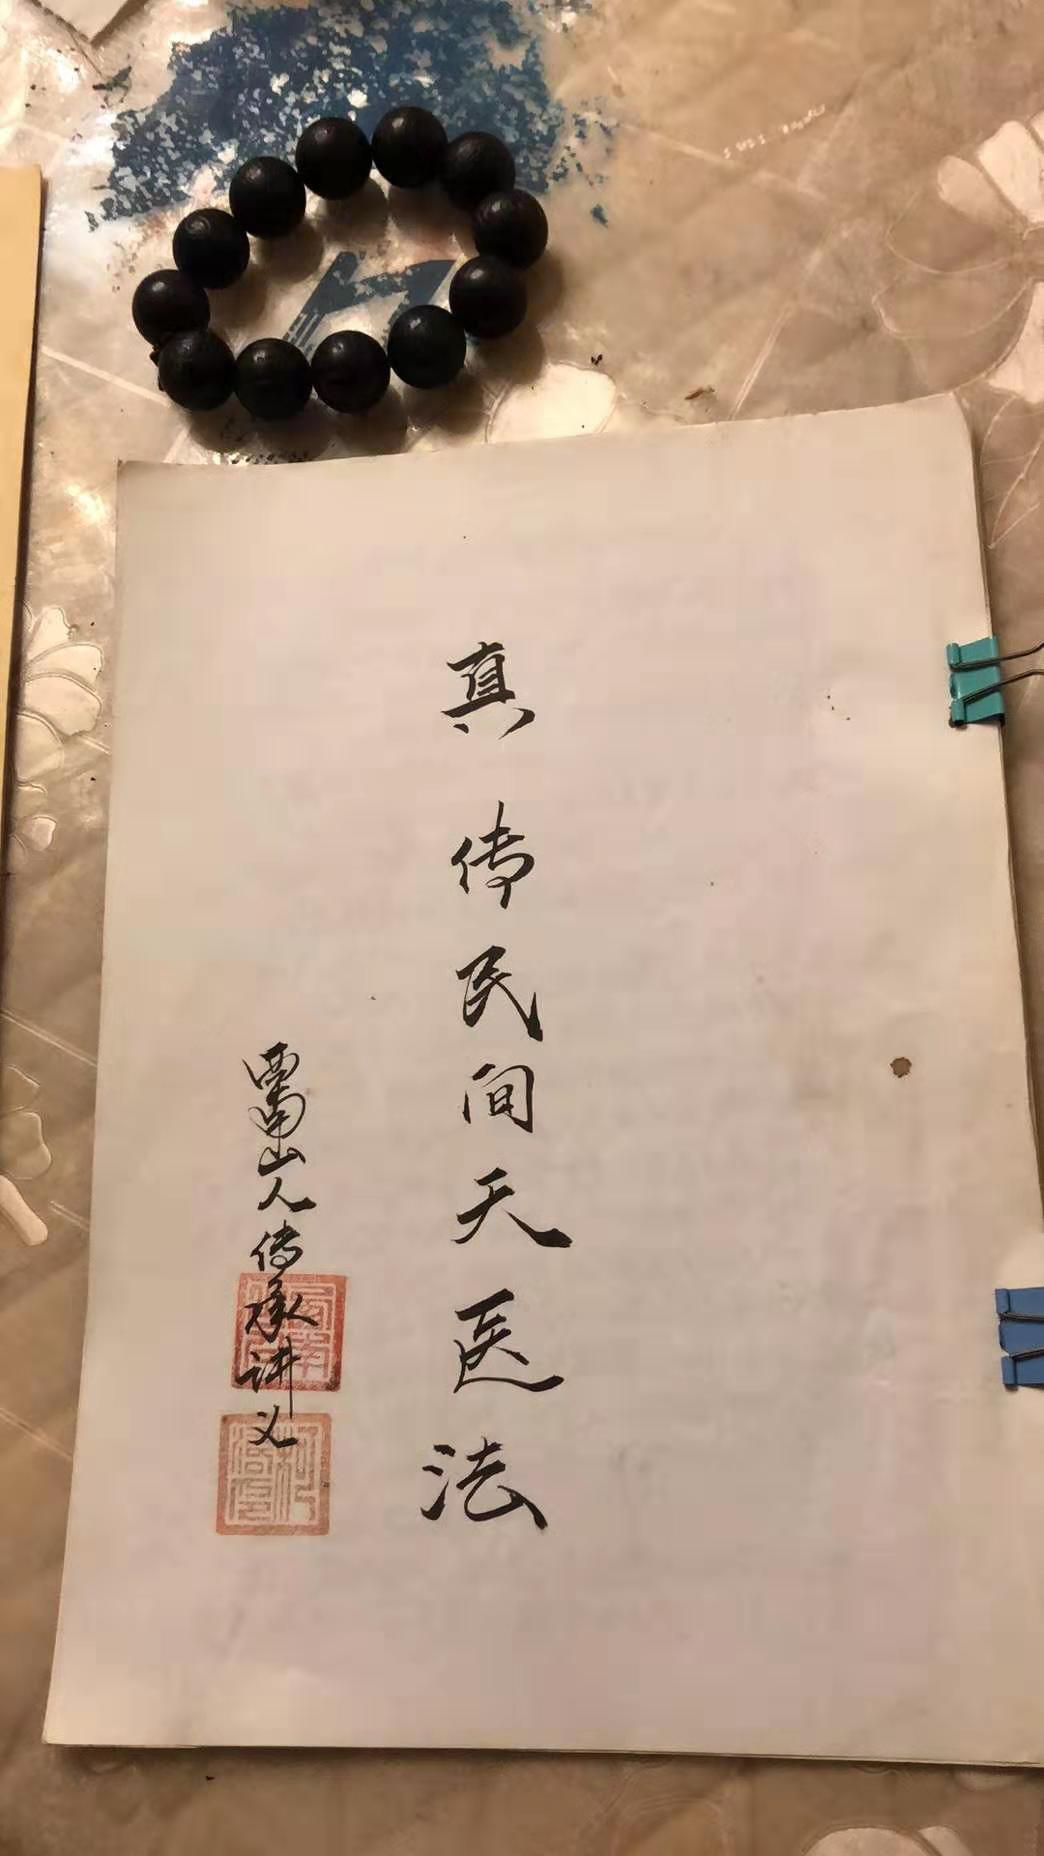 真传民间天医法
西南山人传承讲义